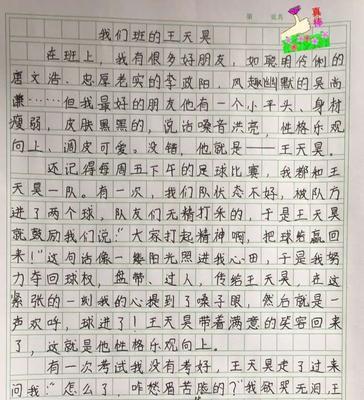 真棒
我们班的王天昊
在班上，我有很多好朋友，如聪明伶俐的
唐文浩、忠厚老实的李政阳、风趣幽默的吴尚
谦……但我最好的朋友他有一个小平头、身材
瘦弱，皮肤黑黑的，说话嗓音洪亮，性格乐观
向上、调皮可爱。没错，他就是——王天昊。
还记得每周五下午的足球比赛，我都和王
天昊一队。有一次，我们队状态不好，被队方
进了两个球，队友们无精打采的，于是王天昊
就鼓励我们说："大家打起精神啊，把球给赢回
来！"这句话像一缕阳光照进我心田，于是我努
力夺回球权，盘带、过人，传给王天昊，在这
紧张的一刻我的心提到了嗓子眼，然后就是一
声欢呼，球进了！王天昊带着满意的笑容回来
了，这就是他性格乐观向上。
有一次考试我没有考好，王天昊走了过来
问我："怎么了，咋愁眉苦脸的？"我欲哭无泪王